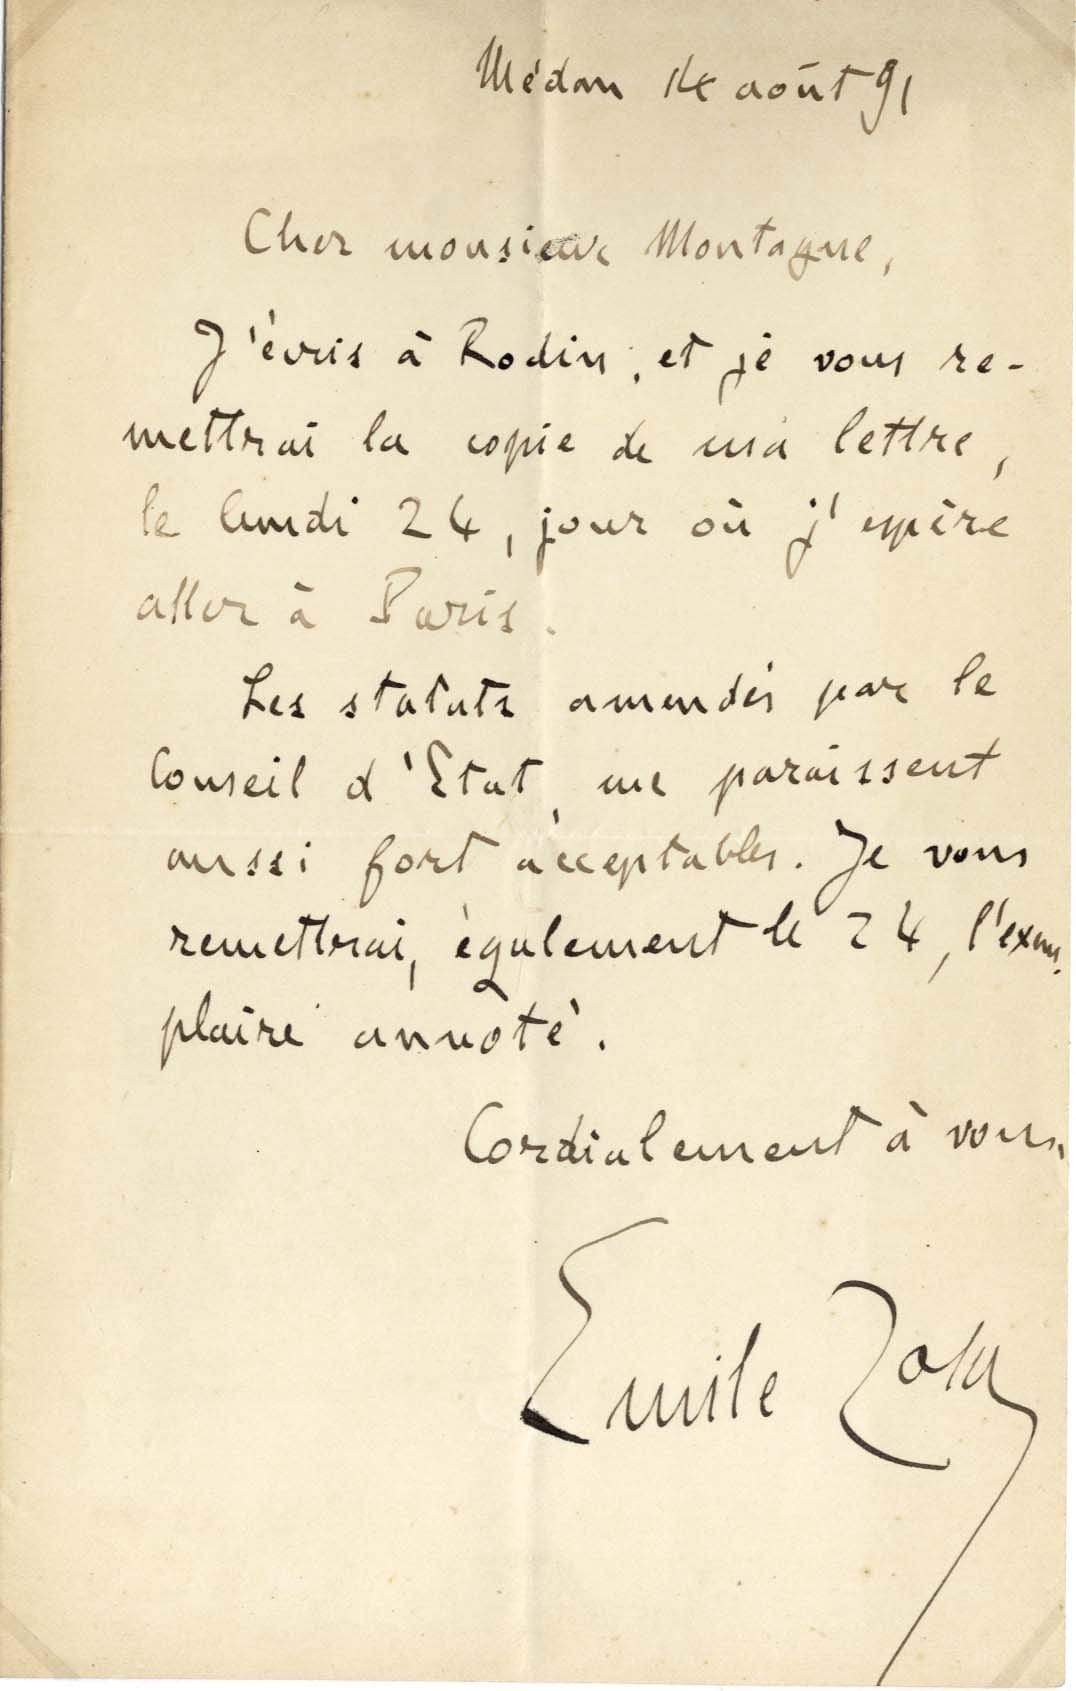 Médan 14 août 91
Cher monsieur Montagne,
J'écris à Rodin, et je vous re-
mettrai la copie de ma lettre,
le lundi 24, jour où j'espère
aller à Paris.
Les statuts amendés par le
Conseil d'Etat, me paraissent
aussi fort acceptables. Je vous
remettrai, également le 24, l'exem-
plaire annoté.
Cordialement à vous.
Emile Zola